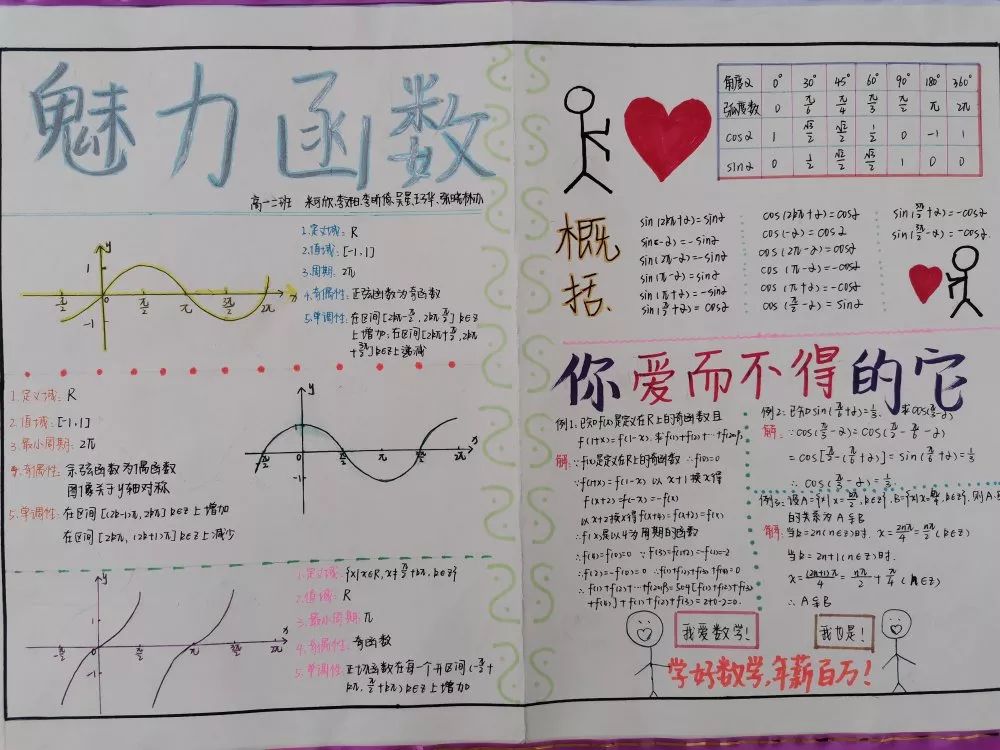 魅力函数
高一二班
1.定义域: R
2.值域: [-1,1]
3.周期: 2π
4.奇偶性: 正弦函数为奇函数
5.单调性: 在区间[2kπ-π/2, 2kπ π/2]k∈Z
上增加;在区间[2kπ+π/2, 2kπ
+3π/2]k∈Z上递减
y
1
-1
π/2
0
π/2
π
3π/2
2π
x
1.定义域: R
2.值域: [-1,1]
3.最小周期: 2π
4.奇偶性: 余弦函数为偶函数
图像关于y轴对称
5.单调性: 在区间[(2k-1)π, 2kπ]k∈Z上增加
在区间[2kπ, (2k+1)π]k∈Z上减少
y
0
-1
π
2π
x
1.定义域: {x|x∈R, x≠π/2+kπ, k∈Z}
2.值域: R
3.最小周期: π
4.奇偶性: 奇函数
5.单调性: 正切函数在每一个开区间(-π/2+
kπ, π/2+kπ)k∈Z上增加
y
0
π
2π
x
角度α 0° 30° 45° 60° 90° 180° 360°
弧度数 0 π/6 π/4 π/3 π/2 π 2π
cosα 1 √3/2 √2/2 1/2 0 -1 1
sinα 0 1/2 √2/2 √3/2 1 0 0
概括.
sin(2kπ+α)=sinα
sin(-α)=-sinα
sin(2π-α)=-sinα
sin(π-α)=sinα
sin(π+α)=-sinα
sin(π/2+α)=cosα
cos(2kπ+α)=cosα
cos(-α)=cosα
cos(2π-α)=cosα
cos(π-α)=-cosα
cos(π+α)=-cosα
cos(π/2-α)=sinα
sin(3π/2+α)=-cosα
sin(3π/2-α)=-cosα
你爱而不得的它
例1:已知f(x)是定义在R上的奇函数且
f(1+x)=f(1-x).求f(1)+f(2)+…+f(20
解:∵f(x)是定义在R上的奇函数 ∴f(0)=0
∵f(1+x)=f(1-x) 以x+1换x得
f(x+2)=f(-x)=-f(x)
以x+2换x得f(x+4)=f(x+2)=f(x)
∴f(x)是以4为周期的函数
∴f(4)=f(0)=0 ∵f(3)=f(1+2)=-f(1)=-2
∴f(2)=-f(0)=0 ∴f(1)+f(2)+f(3)+f(4)=0
∴f(1)+f(2)+…+f(20 =504[f(1)+f(2)+f(3)
+f(4)]+f(1)+f(2)+f(3)=2+0-2=0.
例2:已知sin(π/6+α)=1/3. 求cos(π/3-α)
解: ∵cos(π/3-α)=cos(π/2-π/6-α)
=cos[π/2-(π/6+α)]=sin(π/6+α)=1/3
∴cos(π/3-α)=1/3.
例3:设A={x|x= ,k∈Z},B={x|x= ,k∈Z},则A,B
的关系为A⫋B
解: 当k=2n(n∈Z)时, x=2nπ/4=nπ/2(k∈Z)
当k=2n+1(n∈Z)时.
x=(2n+1)π/4=nπ/2+π/4(n∈Z)
∴A⫋B
我爱数学!
我也是!
学好数学,年薪百万!